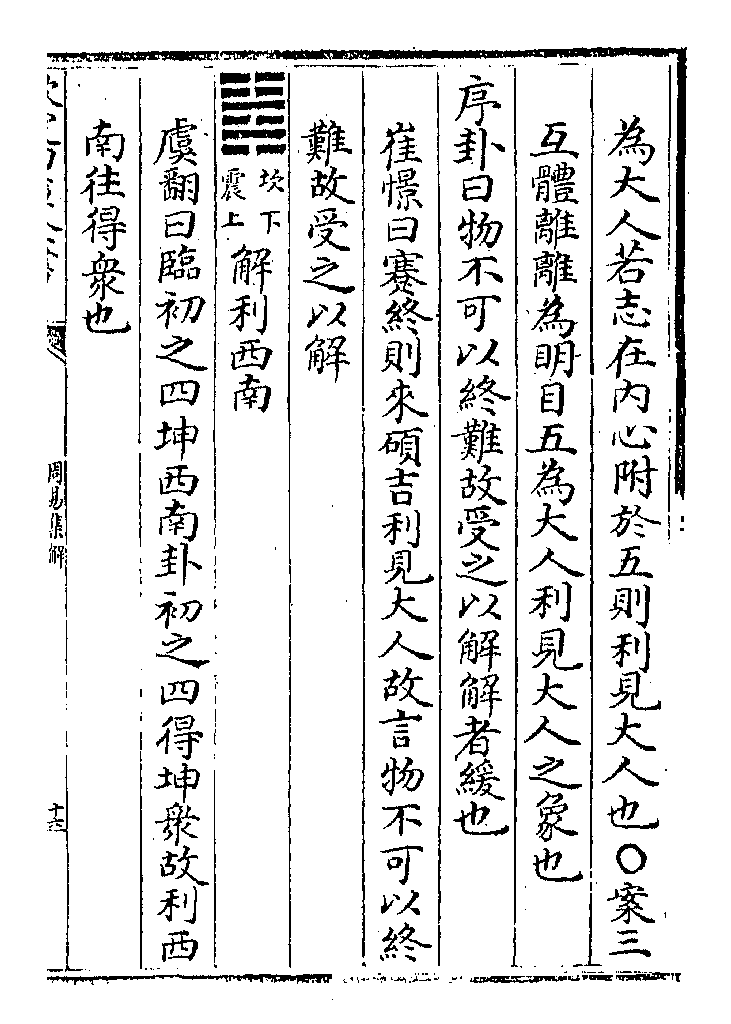 為大人若志在內心附於五則利見大人也○案三
互體離離為明目五為大人利見大人之象也
序卦曰物不可以終難故受之以解解者緩也
崔憬曰蹇終則來碩吉利見大人故言物不可以終
難故受之以解
䷧坎下震上 解利西南
虞翻曰臨初之四坤西南卦初之四得坤衆故利西
南往得衆也
周易集解